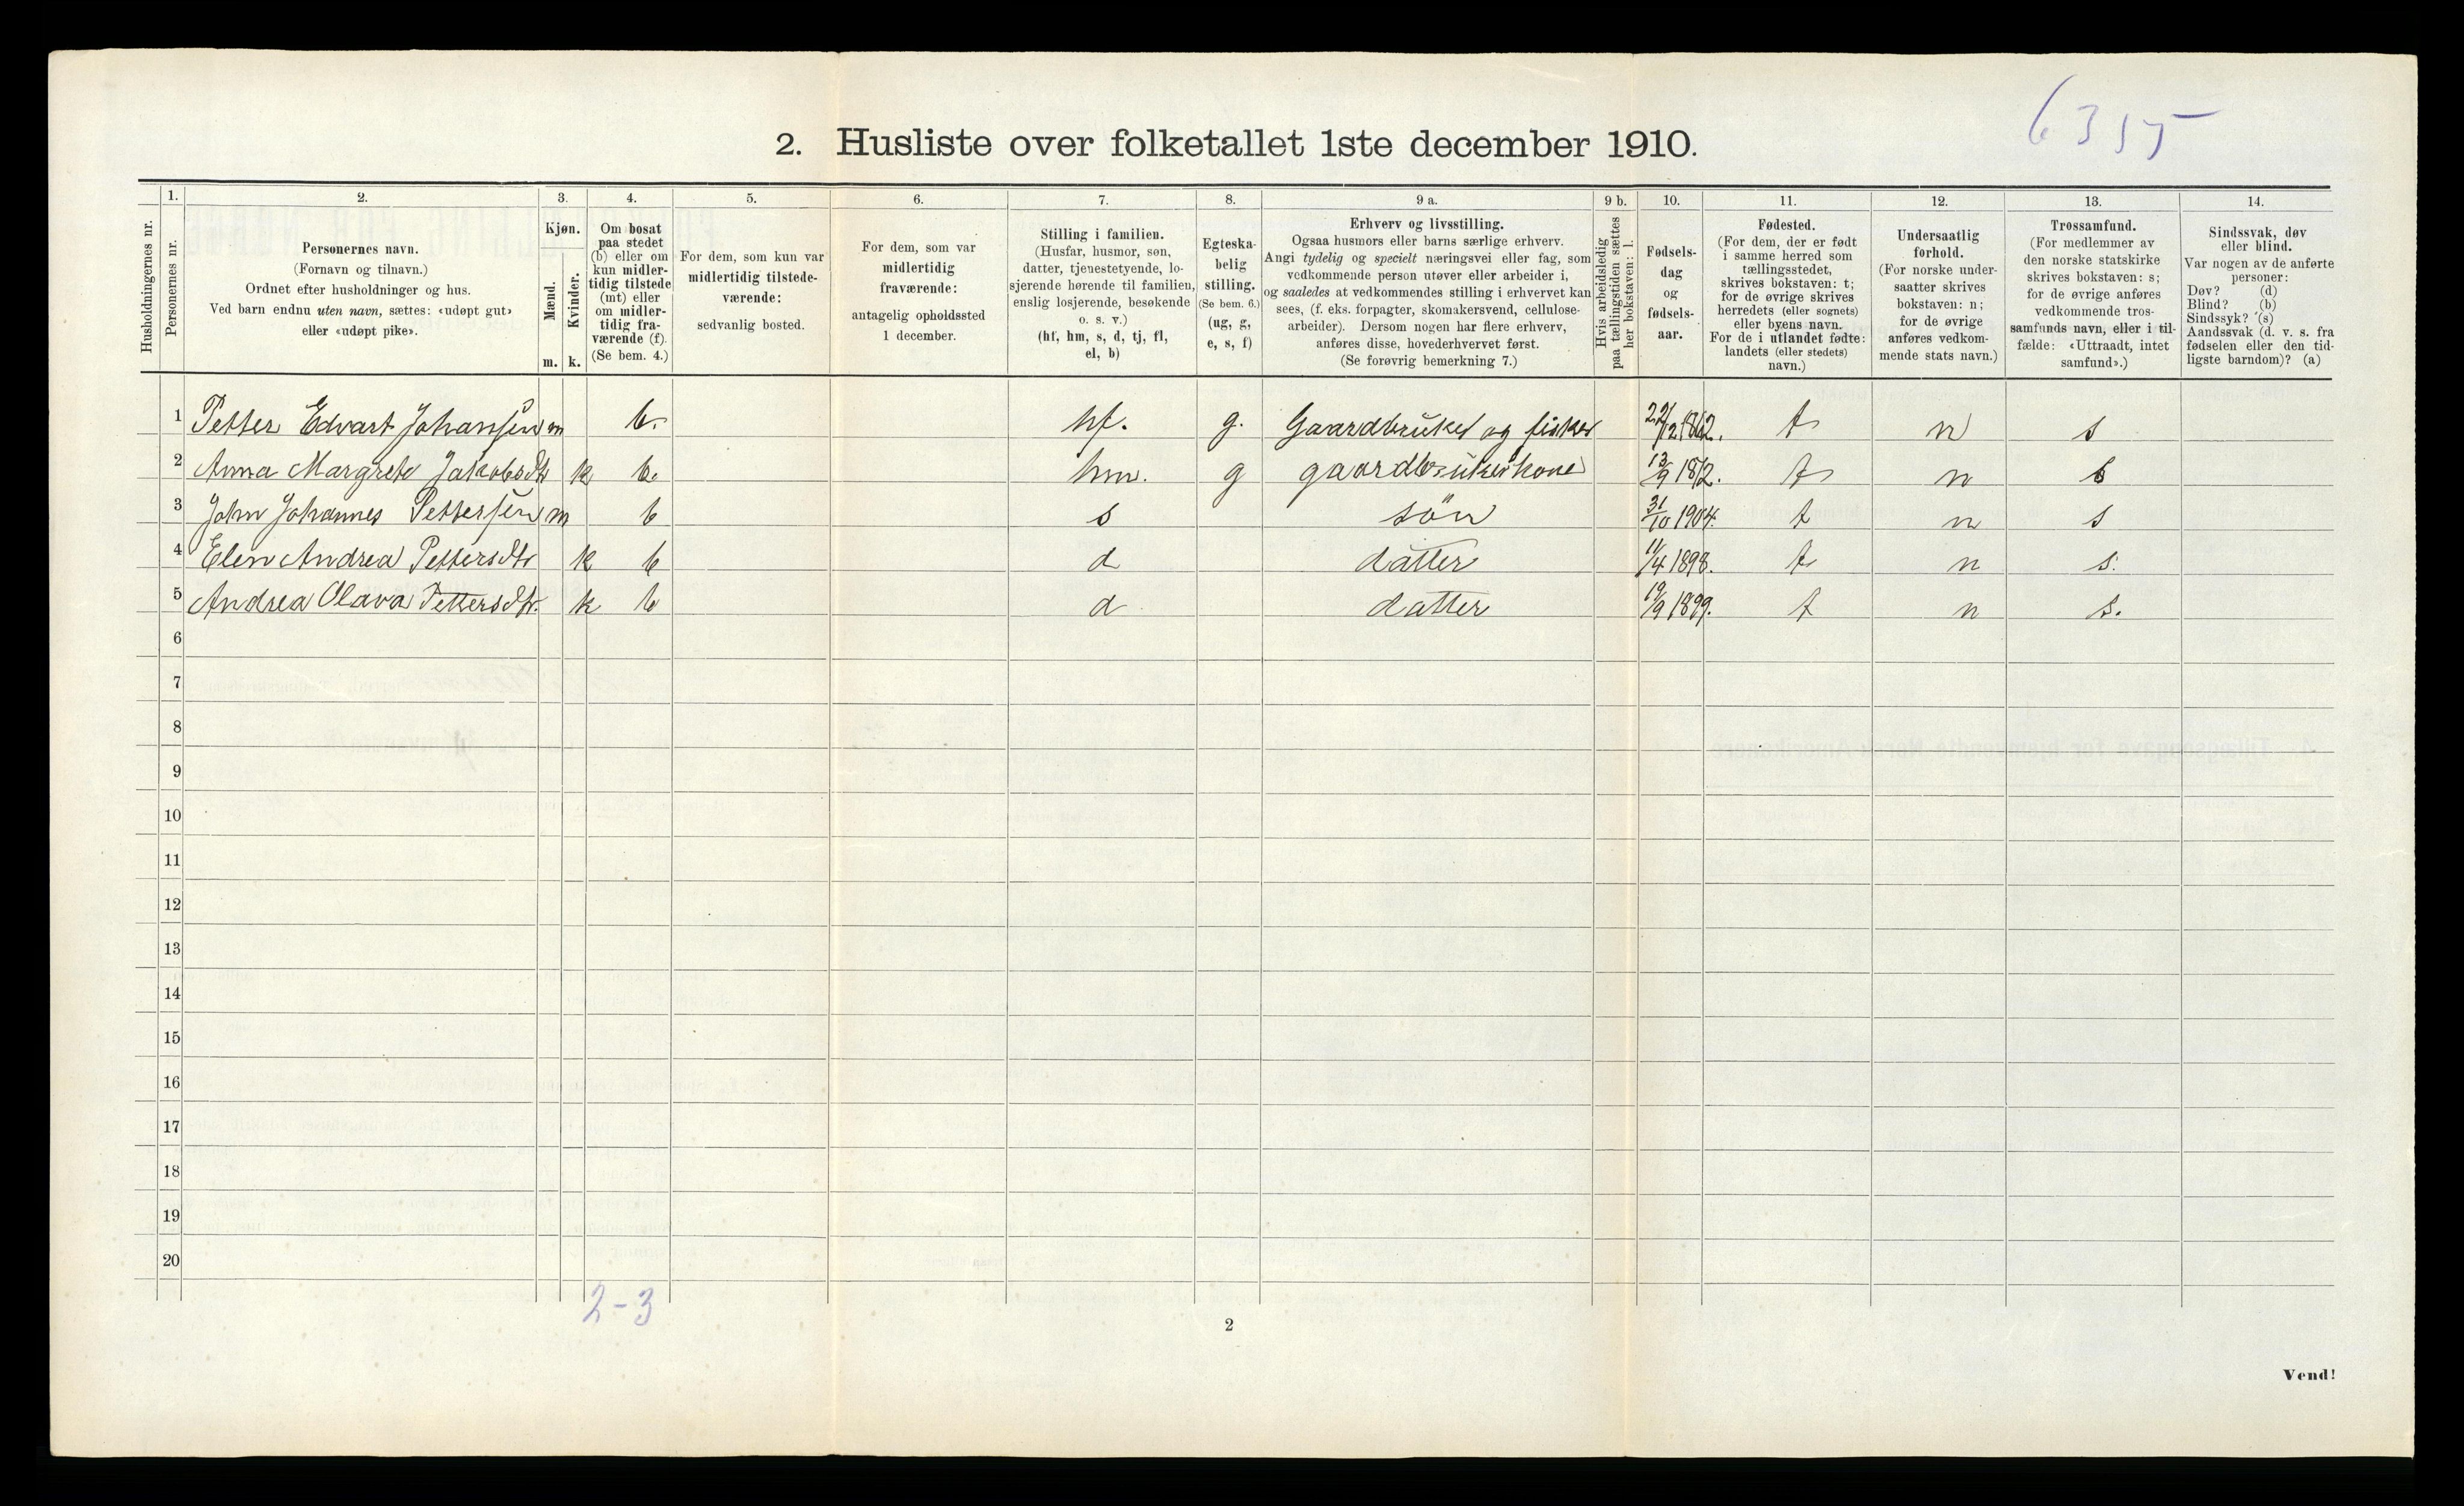 6355
2. Husliste over folketallet 1ste december 1910.
Husholdningernes nr.
1.
Personernes nr.
2.
Personernes navn.
(Fornavn og tilnavn.)
Ordnet efter husholdninger og hus.
Ved barn endnu uten navn, sættes: «udøpt gut»
eller «udøpt pike».
3.
Kjøn.
Mænd.
Kvinder.
m. k.
4.
Om bosat
paa stedet
(b) eller om
kun midler-
tidig tilstede
(mt) eller
om midler-
tidig fra-
værende (f).
(Se bem. 4.)
5.
For dem, som kun var
midlertidig tilstede-
værende:
sedvanlig bosted.
6.
For dem, som var
midlertidig
fraværende:
antagelig opholdssted
1 december.
7.
Stilling i familien.
(Husfar, husmor, søn,
datter, tjenestetyende, lo-
sjerende hørende til familien,
enslig losjerende, besøkende
o. s. v.)
(hf, hm, s, d, tj, fl,
el, b)
8.
Egteska-
belig
stilling.
(Se bem. 6.)
(ug, g,
e, s, f)
9 a.
Erhverv og livsstilling.
Ogsaa husmors eller barns særlige erhverv.
Angi tydelig og specielt næringsvei eller fag, som
vedkommende person utøver eller arbeider i,
og saaledes at vedkommendes stilling i erhvervet kan
sees, (f. eks. forpagter, skomakersvend, cellulose-
arbeider). Dersom nogen har flere erhverv,
anføres disse, hovederhvervet først.
(Se forøvrig bemerkning 7.)
9 b.
Hvis arbeidsledig
paa tællingstiden sættes
her bokstaven: l.
10.
Fødsels-
dag
og
fødsels-
aar.
11.
Fødested.
(For dem, der er født
i samme herred som
tællingsstedet,
skrives bokstaven: t;
for de øvrige skrives
herredets (eller sognets)
eller byens navn.
For de i utlandet fødte:
landets (eller stedets)
navn.)
12.
Undersaatlig
forhold.
(For norske under-
saatter skrives
bokstaven: n;
for de øvrige
anføres vedkom-
mende stats navn.)
13.
Trossamfund.
(For medlemmer av
den norske statskirke
skrives bokstaven: s;
for de øvrige anføres
vedkommende tros-
samfunds navn, eller i til-
fælde: «Uttraadt, intet
samfund».)
14.
Sindssvak, døv
eller blind.
Var nogen av de anførte
personer:
Døv? (d)
Blind? (b)
Sindssyk? (s)
Aandssvak (d. v. s. fra
fødselen eller den tid-
ligste barndom)? (a)
1 Petter Edvart Johansen m b. hf. g. Gaardbruker og fisker 22/12 1862. t n s
2 Anna Margrete Jakobsdtr k b. hm. g gaardbrukerkone 13/9 1872. t n s
3 John Johannes Pettersen m b s søn 31/10 1904. t n s
4 Elen Andrea Pettersdtr k b d datter 11/4 1898. t n s.
5 Andrea Olava Pettersdtr. k b d datter 19/9 1899. t n s.
6
7
8
9
10
11
12
13
14
15
16
17
18
19
20
2-3
2
Vend!